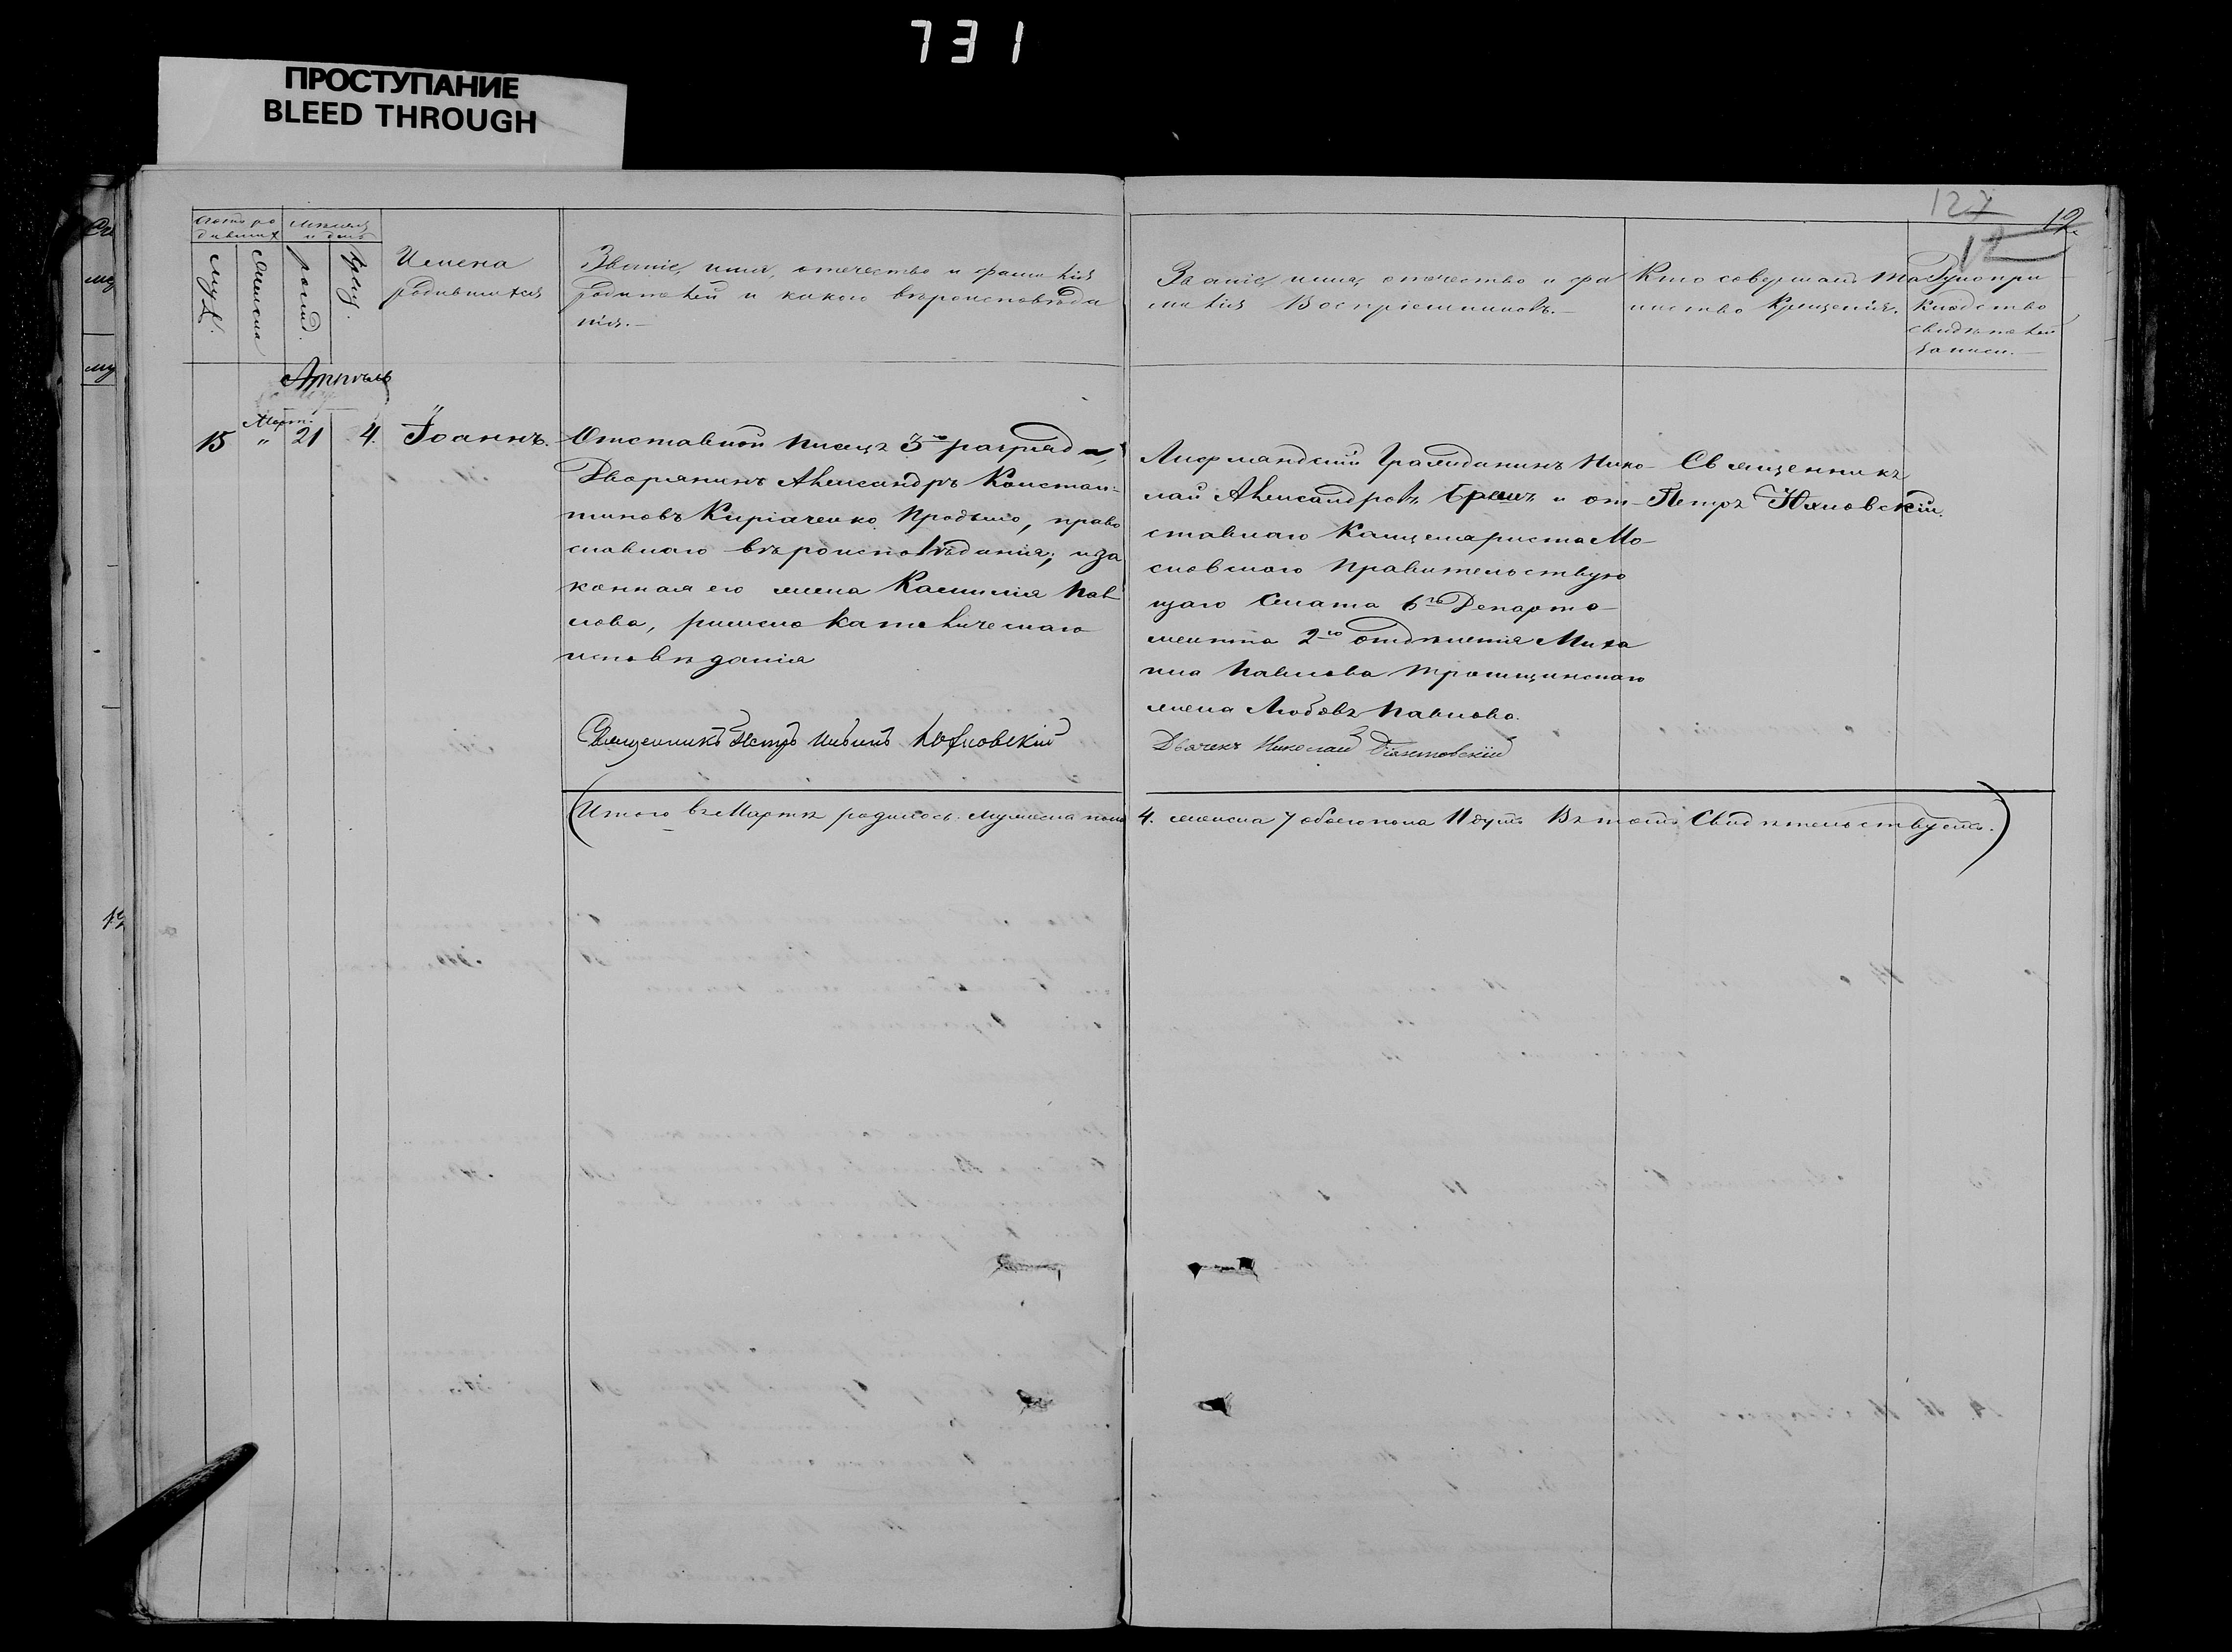 731
ПРОСТУПАНИЕ
BLEED THROUGH
127
12
12
Счетъ ро
дившихъ
Мѣсяцъ
и день
муж.
женска
рожд.
крещ.
Имена
родившихся
Званіе, имя, отечество и фамилія
родителей и какого вѣроисповѣда
нія.—
Званіе, имя, отечество и фа
милія Воспріемниковъ.—
Кто совершалъ та
инство Крещенія.
Рукопри
кладство
свидѣтелей
записи.—
Апрѣль
Март.
15 " 21 4. Іоаннъ.
Отставной писецъ 3го разряда,
Дворянинъ Александръ Констан-
тиновъ Киріаченко, право
славнаго вѣроисповѣданія; и за
конная его жена Камилія Пав
лова, римско католическаго
исповѣданія
Священникъ Петръ Юхновскій
Лифляндскій Гражданинъ Нико-
лай Александровъ и от-
ставнаго Канцеляриста Мо-
сковскаго Правительствую
щаго Сената 6го Департа-
мента 2го отдѣленія Миха
ила Павлова Трощинскаго
жена Любовь Павлова.
Дьячекъ Николай
Священникъ
Петръ Юхновскій.
(Итого въ Мартѣ родилось. Мужеска пола 4. женска 7 обоего пола 11 душъ Въ томъ Свидѣтельствуемъ.)